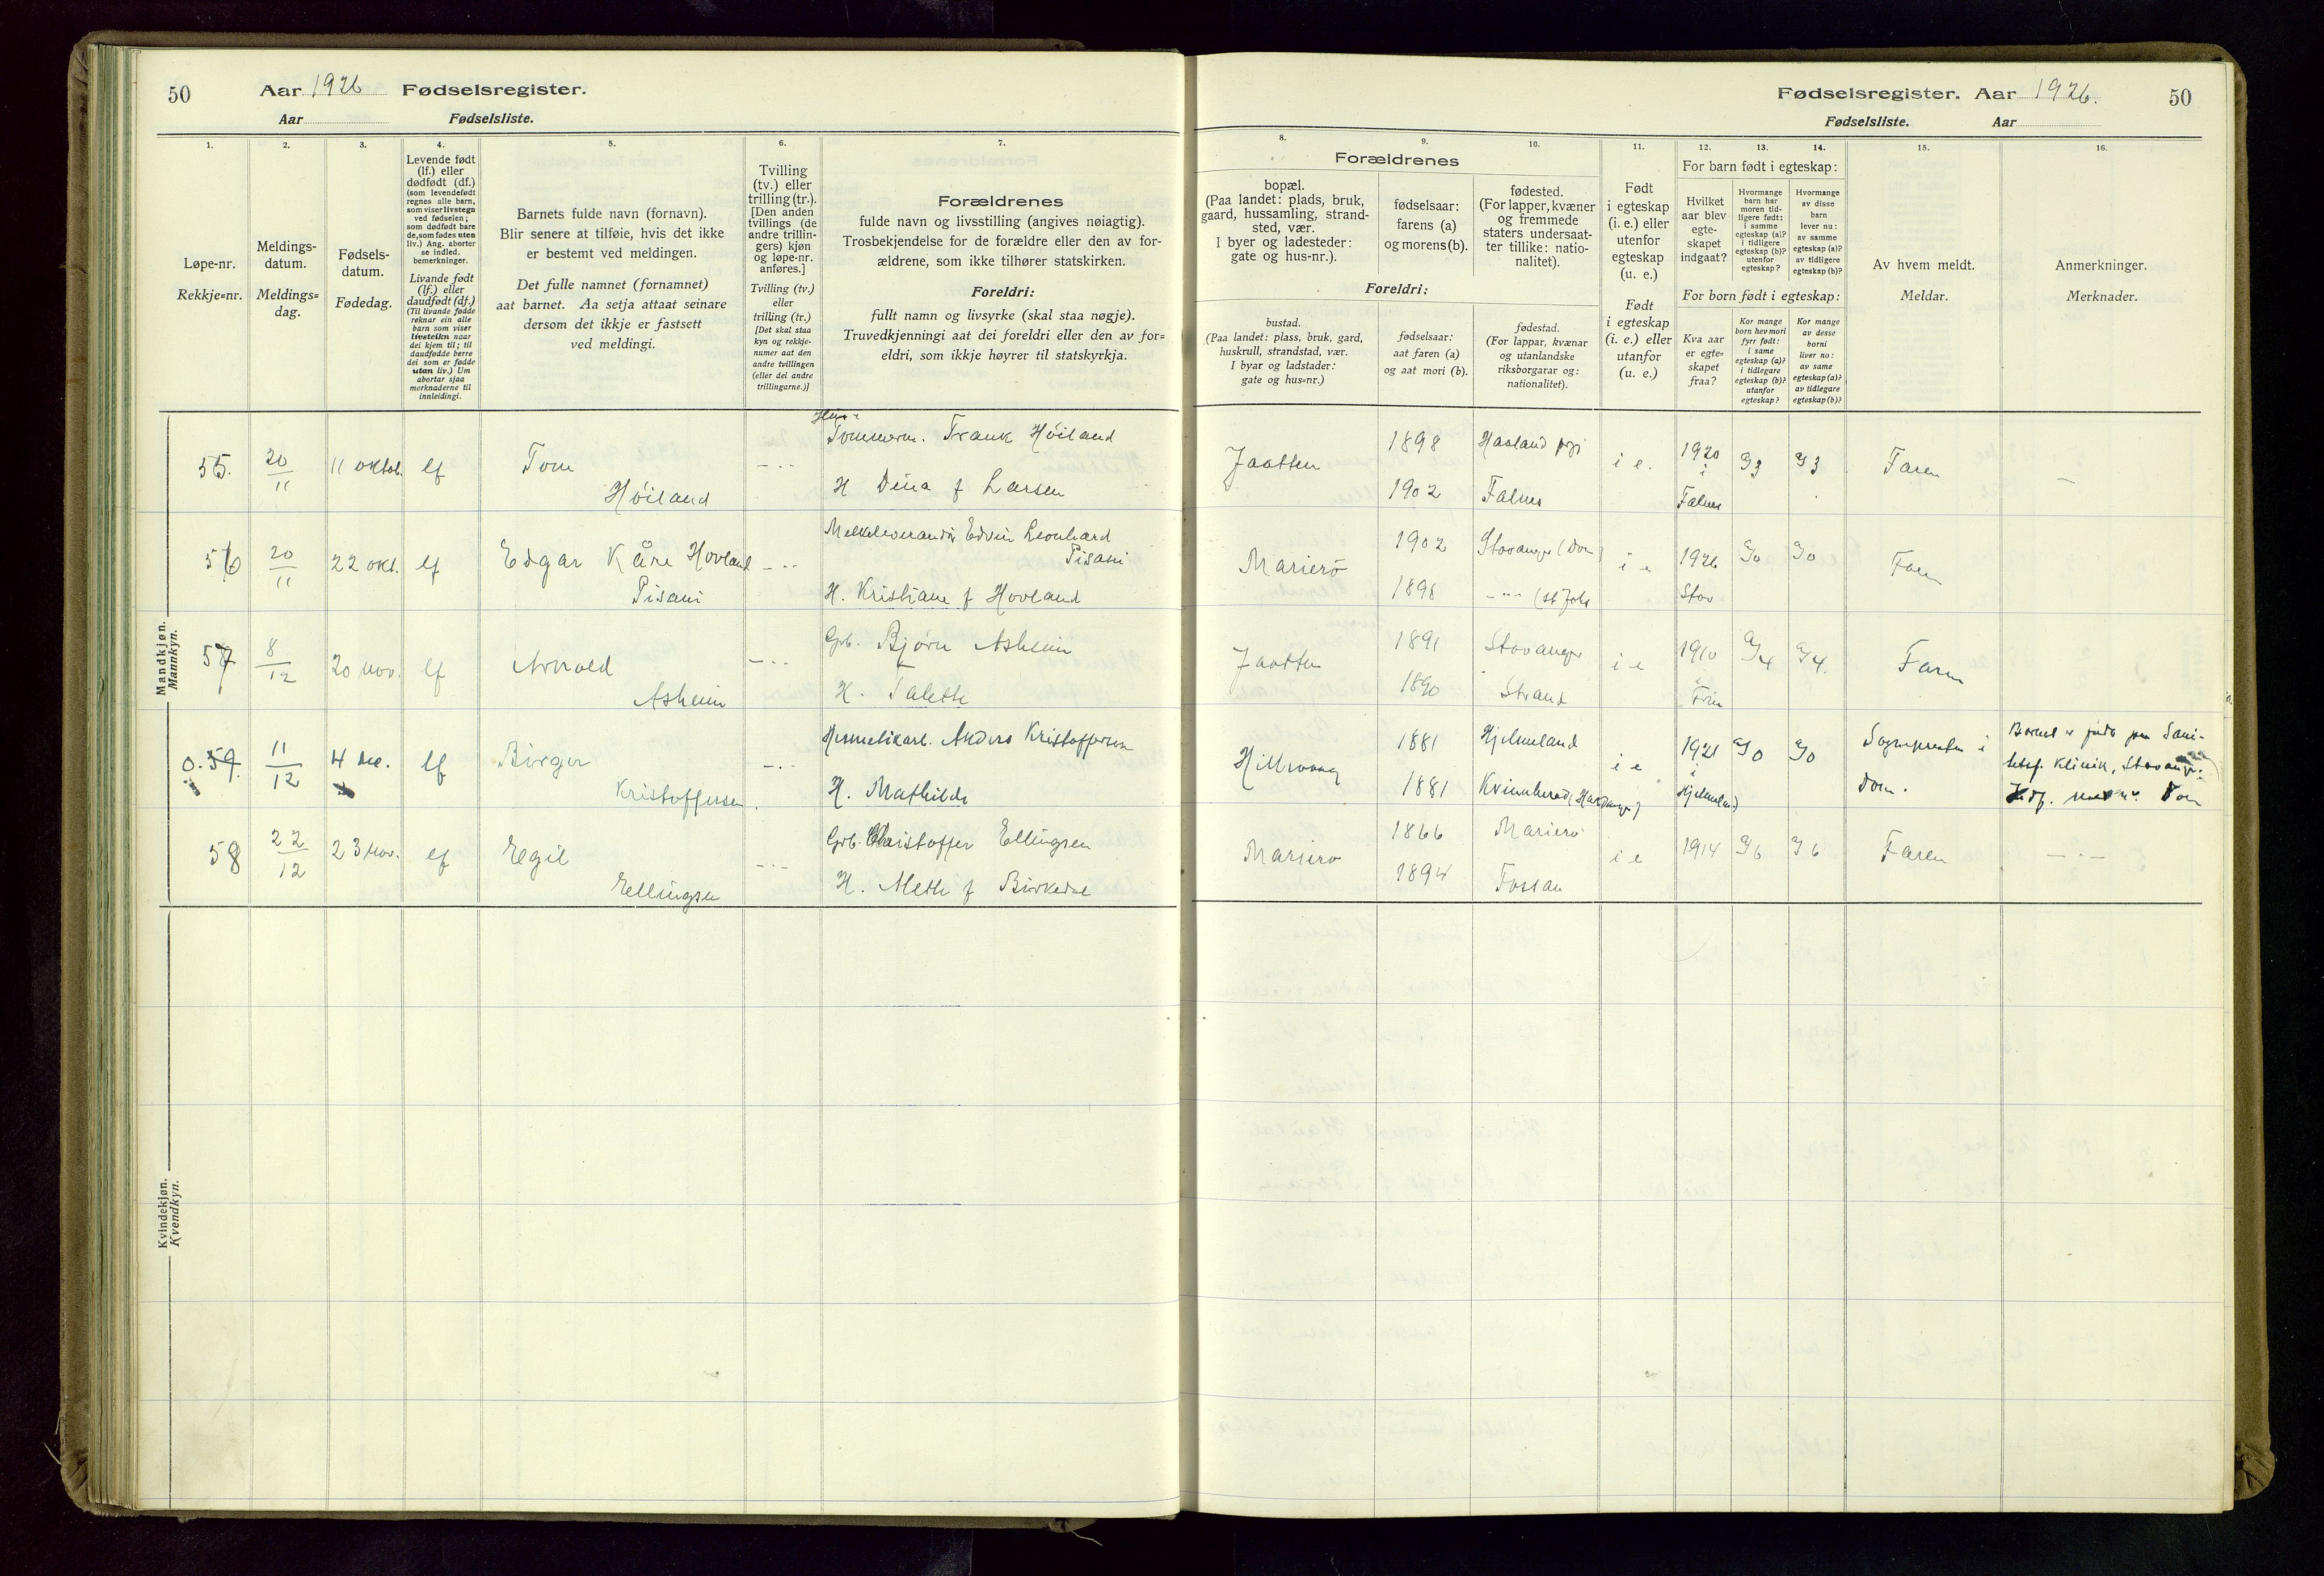 50 Aar 1926 Fødselsregister.
Aar Fødselsliste.
1. 2. 3. 4. 5. 6. 7.
Løpe-nr.
Rekkje=nr.
Meldings-
datum.
Meldings=
dag.
Fødsels-
datum.
Fødedag.
Levende født
(lf.) eller
dødfødt (df.)
(som levendefødt
regnes alle barn,
som viser livstegn
ved fødselen;
som dødfødt bare
de, som fødes uten
liv.) Ang. aborter
se indled.
bemerkninger.
Livande født
(lf.) eller
daudfødt (df.)
(Til livande fødde
reknar ein alle
barn som viser
livsteikn naar
dei kjem til; til
daudfødde berre
dei som er fødde
utan liv.) Um
abortar sjaa
merknaderne til
innleidingi.
Barnets fulde navn (fornavn).
Blir senere at tilføie, hvis det ikke
er bestemt ved meldingen.
Det fulle namnet (fornamnet)
aat barnet. Aa setja attaat seinare
dersom det ikkje er fastsett
ved meldingi.
Tvilling
(tv.) eller
trilling (tr.).
[Den anden
tvillings (de
andre trillin-
gers) kjøn
og løpe-nr.
anføres.]
Tvilling (tv.)
eller
trilling (tr.)
[Det skal staa
kyn og rekkje-
numer aat den
andre tvillingen
(eller dei andre
trillingarne.)]
Forældrenes
fulde navn og livsstilling (angives nøiagtig).
Trosbekjendelse for de forældre eller den av for-
ældrene, som ikke tilhører statskirken.
Foreldri:
fullt namn og livsyrke (skal staa nøgje).
Truvedkjenningi aat dei foreldri eller den av for=
eldri, som ikkje høyrer til statskyrkja.
Mandkjøn.
Mannkyn.
55. 20/11 11 oktob. lf Tom
Høiland
Tømmerm. Frank Høiland
H Dina f Larsen
56 20/11 22 okt. lf Edgar Kåre Hovland
Pisani
Melkeleverandør Edvin Leonhard
Pisani
H. Kristiane f Hovland
57 8/12 20 nov. lf Arnold
Asheim
Grb. Bjørn Asheim
H. Taleth
0. 59. 11/12 4 dec. lf Birger
Kristoffersen.
Hermetikarb. Anders Kristoffersen
H. Mathilde
58 22/12 23 nov. lf Egil
Ellingsen
Grb. Christoffer Ellingsen
H. Meth f Birkedal
Kvindekjøn.
Kvendkyn.
Fødselsregister. Aar 1926. 50
Fødselsliste. Aar
8. 9. 10. 11. 12. 13. 14. 15. 16.
Forældrenes
bopæl.
(Paa landet: plads, bruk,
gaard, hussamling, strand-
sted, vær.
I byer og ladesteder:
gate og hus-nr.).
fødselsaar:
farens (a)
og morens (b).
fødested.
(For lapper, kvæner
og fremmede
staters undersaat-
ter tillike: natio-
nalitet).
Foreldri:
bustad.
(Paa landet: plass, bruk, gard,
huskrull, strandstad, vær.
I byar og ladstader:
gate og hus=nr.)
fødselsaar:
aat faren (a)
og aat mori (b).
fødestad.
(For lappar, kvænar
og utanlandske
riksborgarar og:
nationalitet).
Født
i egteskap
(i. e.) eller
utenfor
egteskap
(u. e.)
Født
i egteskap
(i. e.) eller
utanfor
(u. e.)
For barn født i egteskap:
Hvilket
aar blev
egte-
skapet
indgaat?
Hvormange
barn har
moren tid-
ligere født:
i samme
egteskap (a)?
i tidligere
egteskap (b)?
utenfor
egteskap?
Hvormange
av disse
barn
lever nu:
av samme
egteskap (a)?
av tidligere
egteskap (b)?
For born født i egteskap:
Kva aar
er egte-
skapet
fraa?
Kor mange
born hev mori
fyrr født:
i same
egteskap (a)?
i tidlegare
egteskap (b)?
utanfor
egteskap?
Kor mange
av desse
borni
liver no:
av same
egteskap (a)?
av tidlegare
egteskap (b)?
Av hvem meldt.
Meldar.
Anmerkninger.
Merknader.
Jaatten 1898 Haaland
1902 Falnes
i e. 1920
i
Falnes
a/3 a/3 Faren —
Marierø 1902 Stavanger (Dom)
1898 (St Joh
i e 1926
Stav
a/0 a/0 Faren
Jaatten 1891 Stavanger
1890 Strand
i e 1910
i
a/4 a/4. Faren
Hillevaag 1881 Hjelmeland
1881 Kvinnherad (Hardanger)
i e 1921
i
Hjelmeland
a/0 a/0 Sognepresten i
Dom.
Barnet er født paa Sani-
tetsf. Klinik, Stavanger.
Dom
Marierø 1866 Marierø
1894 Fossan
i e 1914 a/6 a/6 Faren —"—